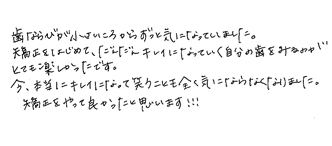 歯ならびが小さいころからずっと気になっていました。
矯正をはじめて、だんだんキレイになっていく自分の歯をみるのが
とても楽しかったです。
今、本当にキレイになって笑うことも全く気にならなくなりました。
矯正をやって良かったと思います!!!